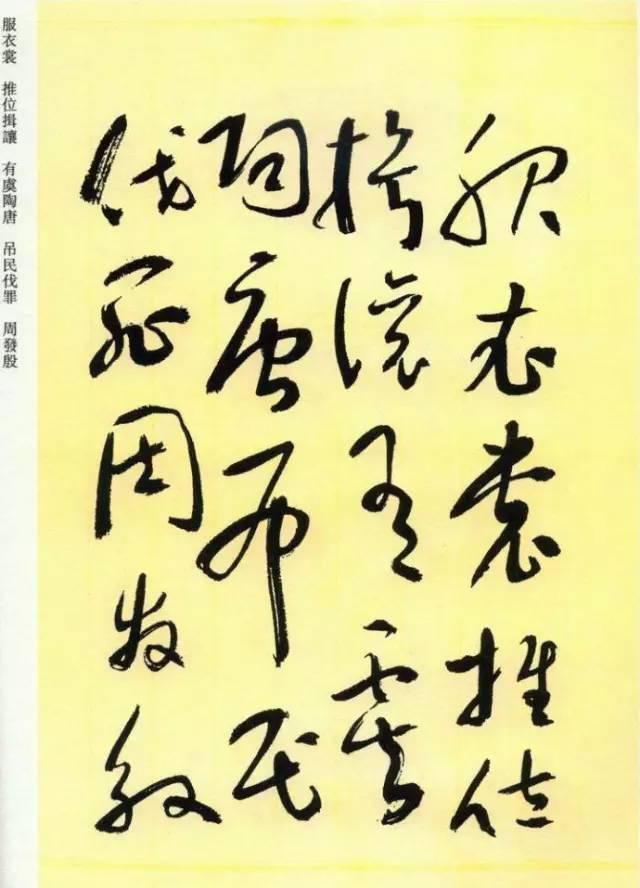 服衣裳推位
揖讓有虞
陶唐吊民
伐罪周發殷
服衣裳　推位揖讓　有虞陶唐　吊民伐罪　周發殷